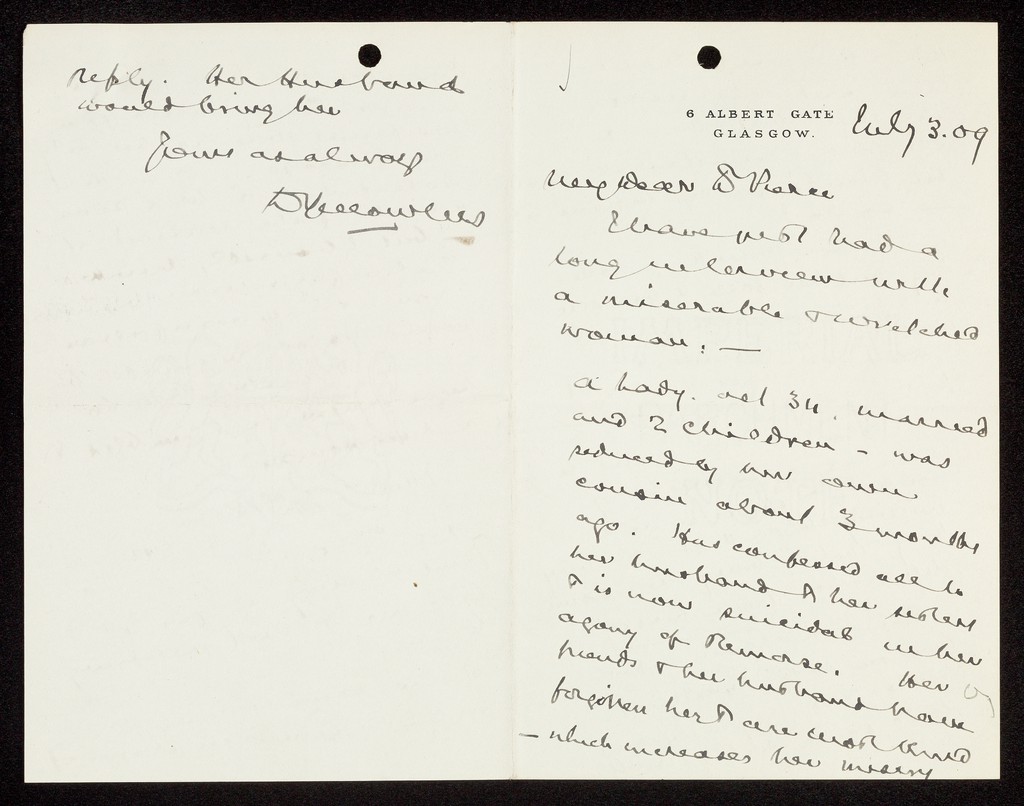 reply. Her Husband
would bring her
Yours as always
D Yellowlees
6 ALBERT GATE
GLASGOW.
July 3.09
My dear Dr Pierce
I have just had a
long interview with
a miserable & wretched
woman: —
A Lady. aet 34. married
and 2 children - was
seduced by her own
cousin about 3 months
ago. Has confessed all to
her husband & her sisters
& is now suicidal in her
agony of Remorse. Her
friends & her husband have
forgiven her & are most kind
- which increases her misery